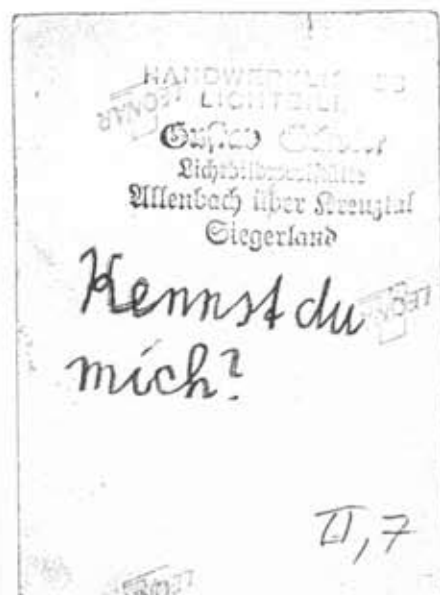 HANDWERKLICHES
LICHTBILD
Gustav
Lichtbildwerkstätte
Allenbach über Kreuztal
Siegerland
Kennst du
mich?
II, 7
LEONAR
LEONAR
LEONAR